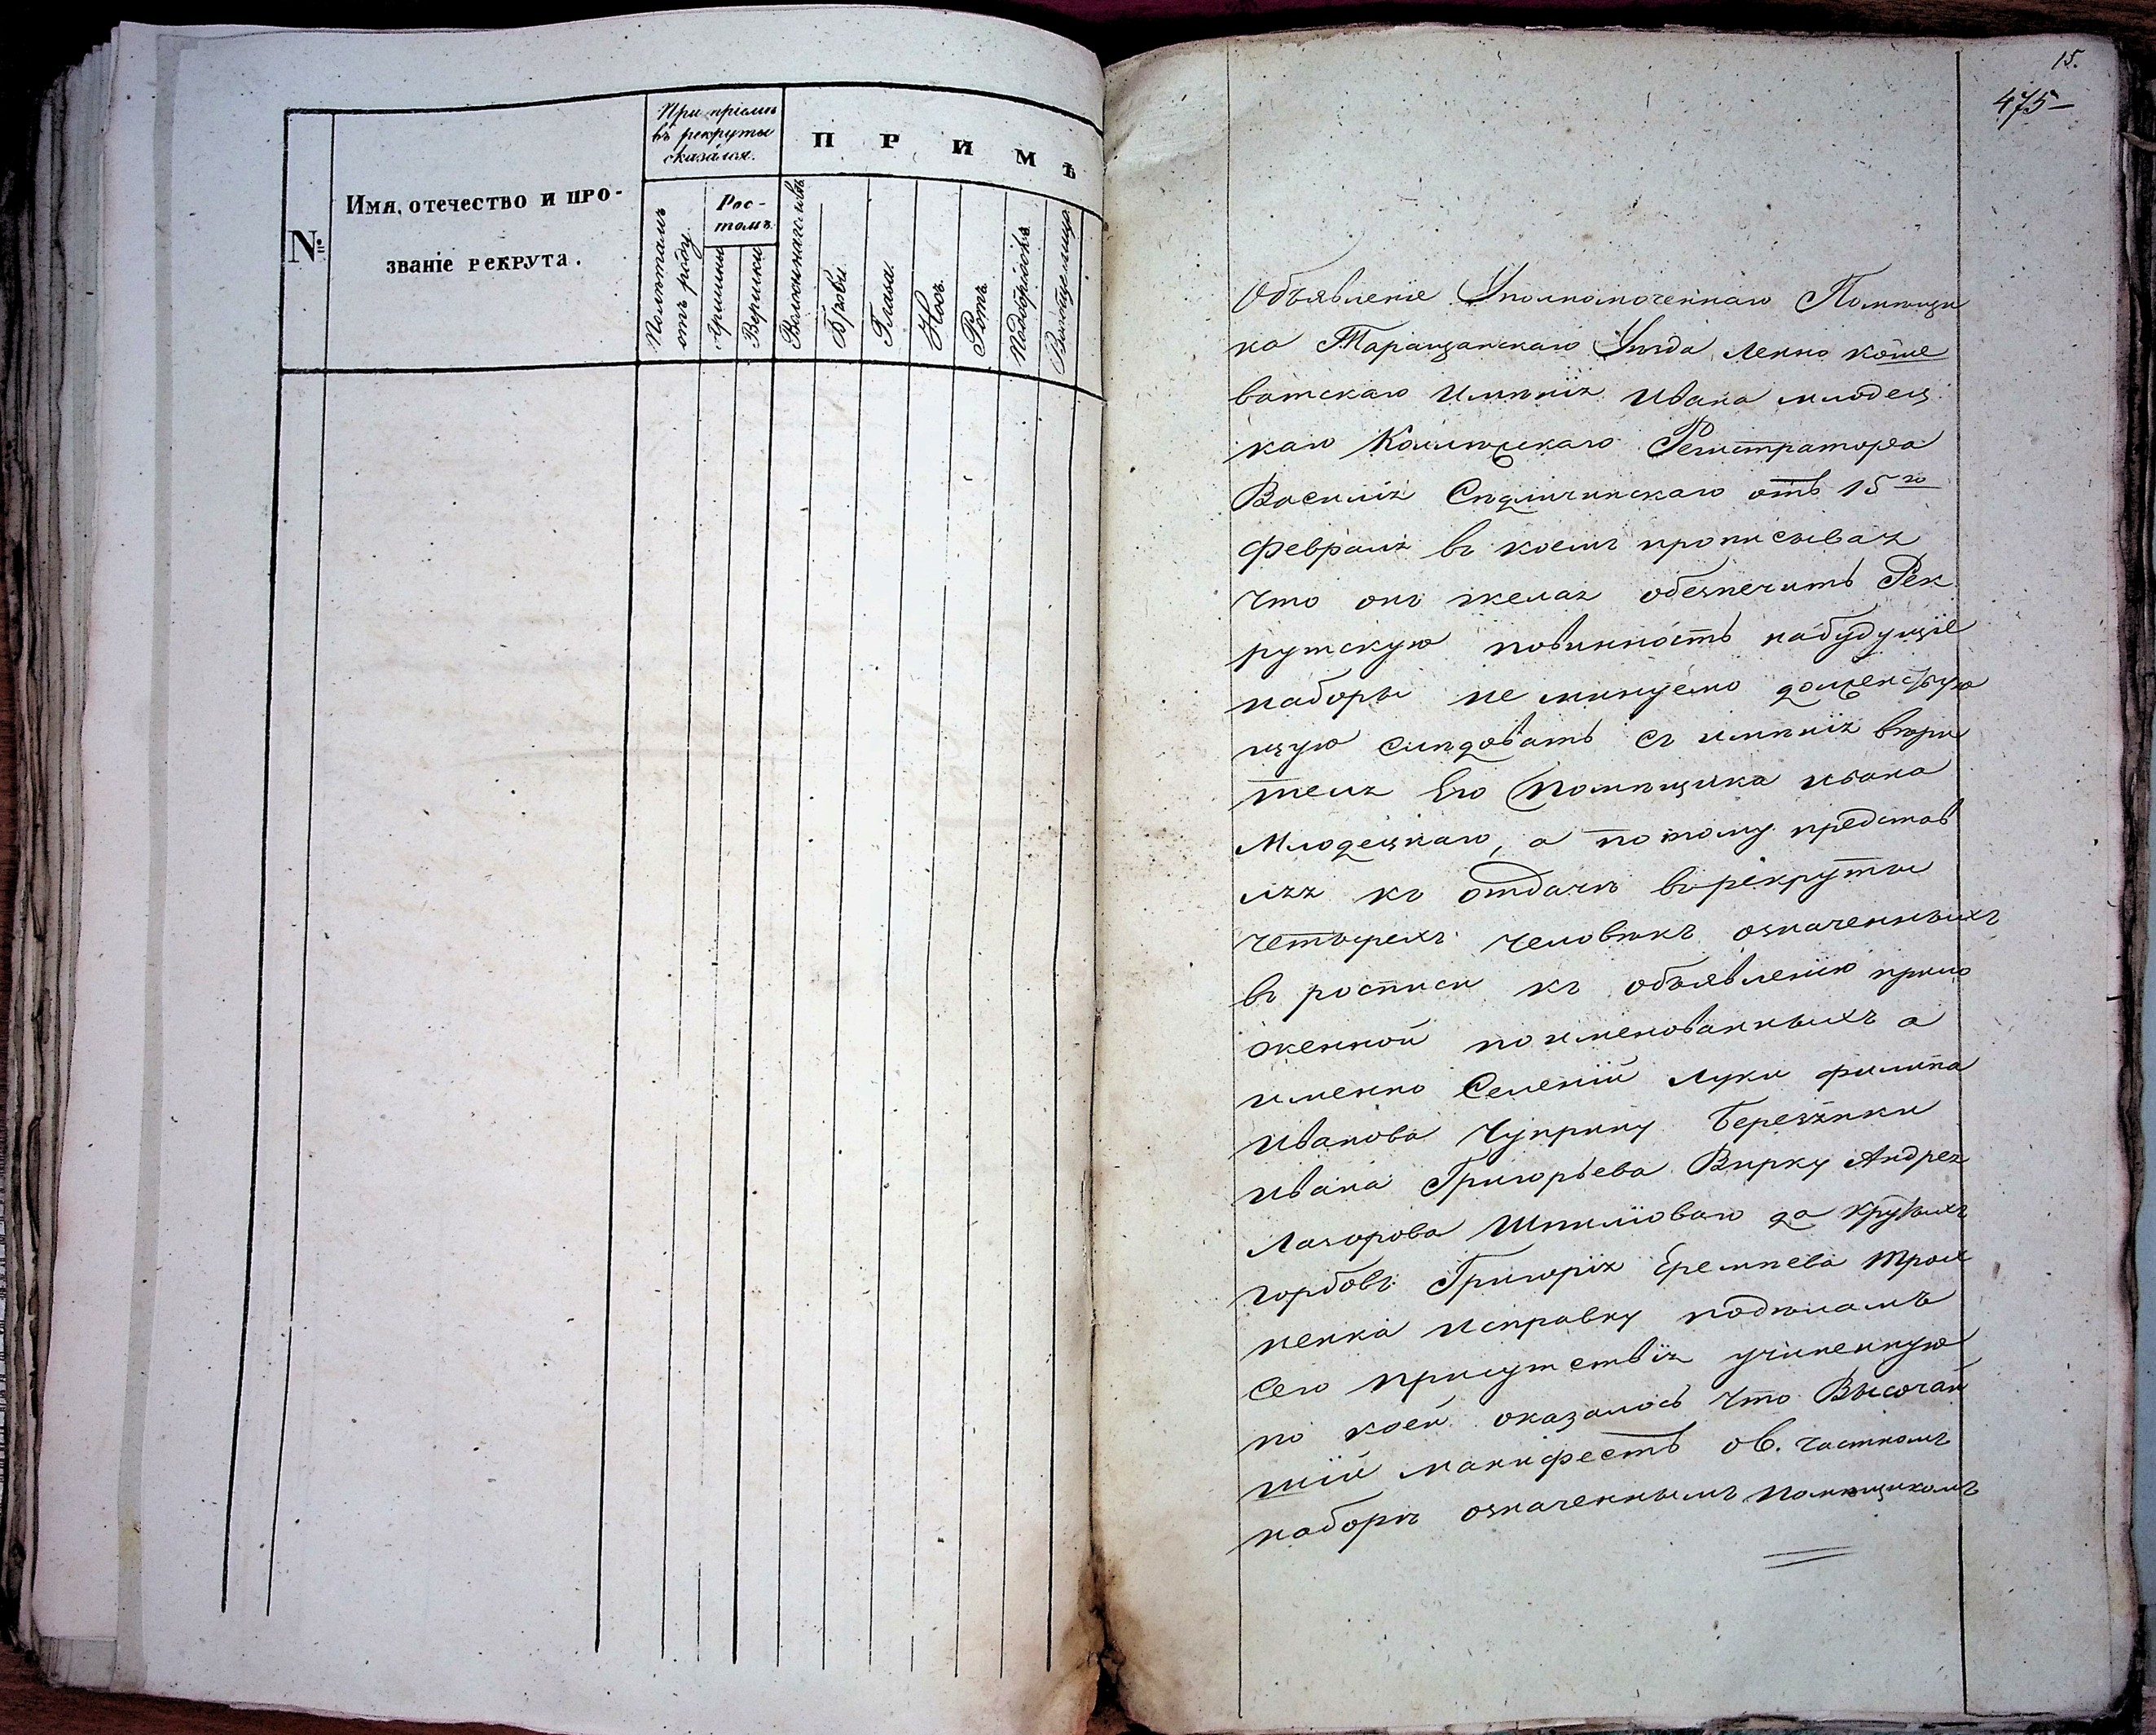 №
Имя, отечество и про-
званіе рекрута.
При пріемѣ
въ рекруты
сказался.
Полѣтамъ
отъ роду.
Рос-
томъ.
Аршины
Вершки
Брови.
Глаза.
Носъ.
Ротъ.
Подбородокъ.
П Р И М Ѣ
15.
475
Объявленіе Уполномоченнаго Помѣщи
ка Таращанскаго Уѣзда Ленко Коше
ватскаго Имѣнія Ивана Млодец
каго Колежскаго Регистратора
Василія отъ 15го
февраля въ коемъ прописывая
что онъ желая обезпечить Рек
рутскую повинность набудущіе
наборы не минуемо долженствую
щую слѣдовать съ имѣнія вѣри
теля Его Помѣщика Ивана
Млодецкаго, а потому представ
ляя къ отдачѣ врекруты
четырехъ человѣкъ означенныхъ
въ росписи къ объявленію прило
женной поименованныхъ а
именно Селеній Луки филипа
Иванова Чуприну Березянки
Ивана Григорьева Вирку Андрея
Лазорова Шпилїоваго да Крутыхъ
горбовъ Григорія Еремѣева Трох
ненка исправку подѣламъ
сего присутствія учиненную
по коей оказалось что Высочай
шій манифестъ об. частномъ
наборѣ означеннымъ помѣщикомъ